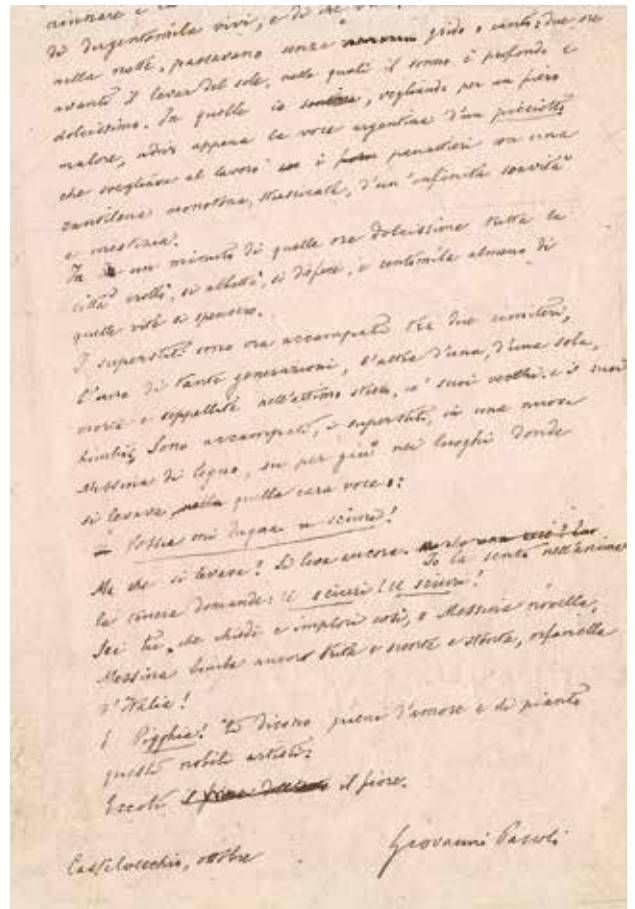 di dugentomila vivi, e di che
nella notte, passavano senza grido o canto, due ore
avanti il levar del sole, nelle quali il sonno è profondo e
dolcissimo. In quelle io, vegliando per un fiero
malore, udii appena la voce argentina d'un picciotto
che svegliava al lavoro i panattieri con una
cantilena monotona, strascicata, d'un'infinita soavità
e mestizia.
In un minuto di quelle ore dolcissime tutta la
città crollò, si abbatté, si disfece, e centomila almeno di
quelle vite si spensero.
I superstiti sono ora accampati tra due cimiteri,
l'uno di tante generazioni, l'altro d'una, d'una sola,
morta e seppellita nell'attimo stesso, co' suoi vecchi e i suoi
bimbi. Sono accampati, i superstiti, in una nuova
Messina di legno, su per giù nei luoghi donde
si levava quella cara voce:
Vossia mi dugna u sciuri!
Ma che si levava? Si leva ancora. Io la sento nell'anima
la sincera domanda: U sciuri! U sciuri!
Sei tu, che chiedi e implori così, o Messina novella,
Messina bimba ancora tutta e smorta e stenta, orfanella
d'Italia!
E Pigghia! ti dicono pieni d'amore e di pianto
questi nobili artisti:
Eccoti il fiore.
Castelvecchio, ottobre
Giovanni Pascoli